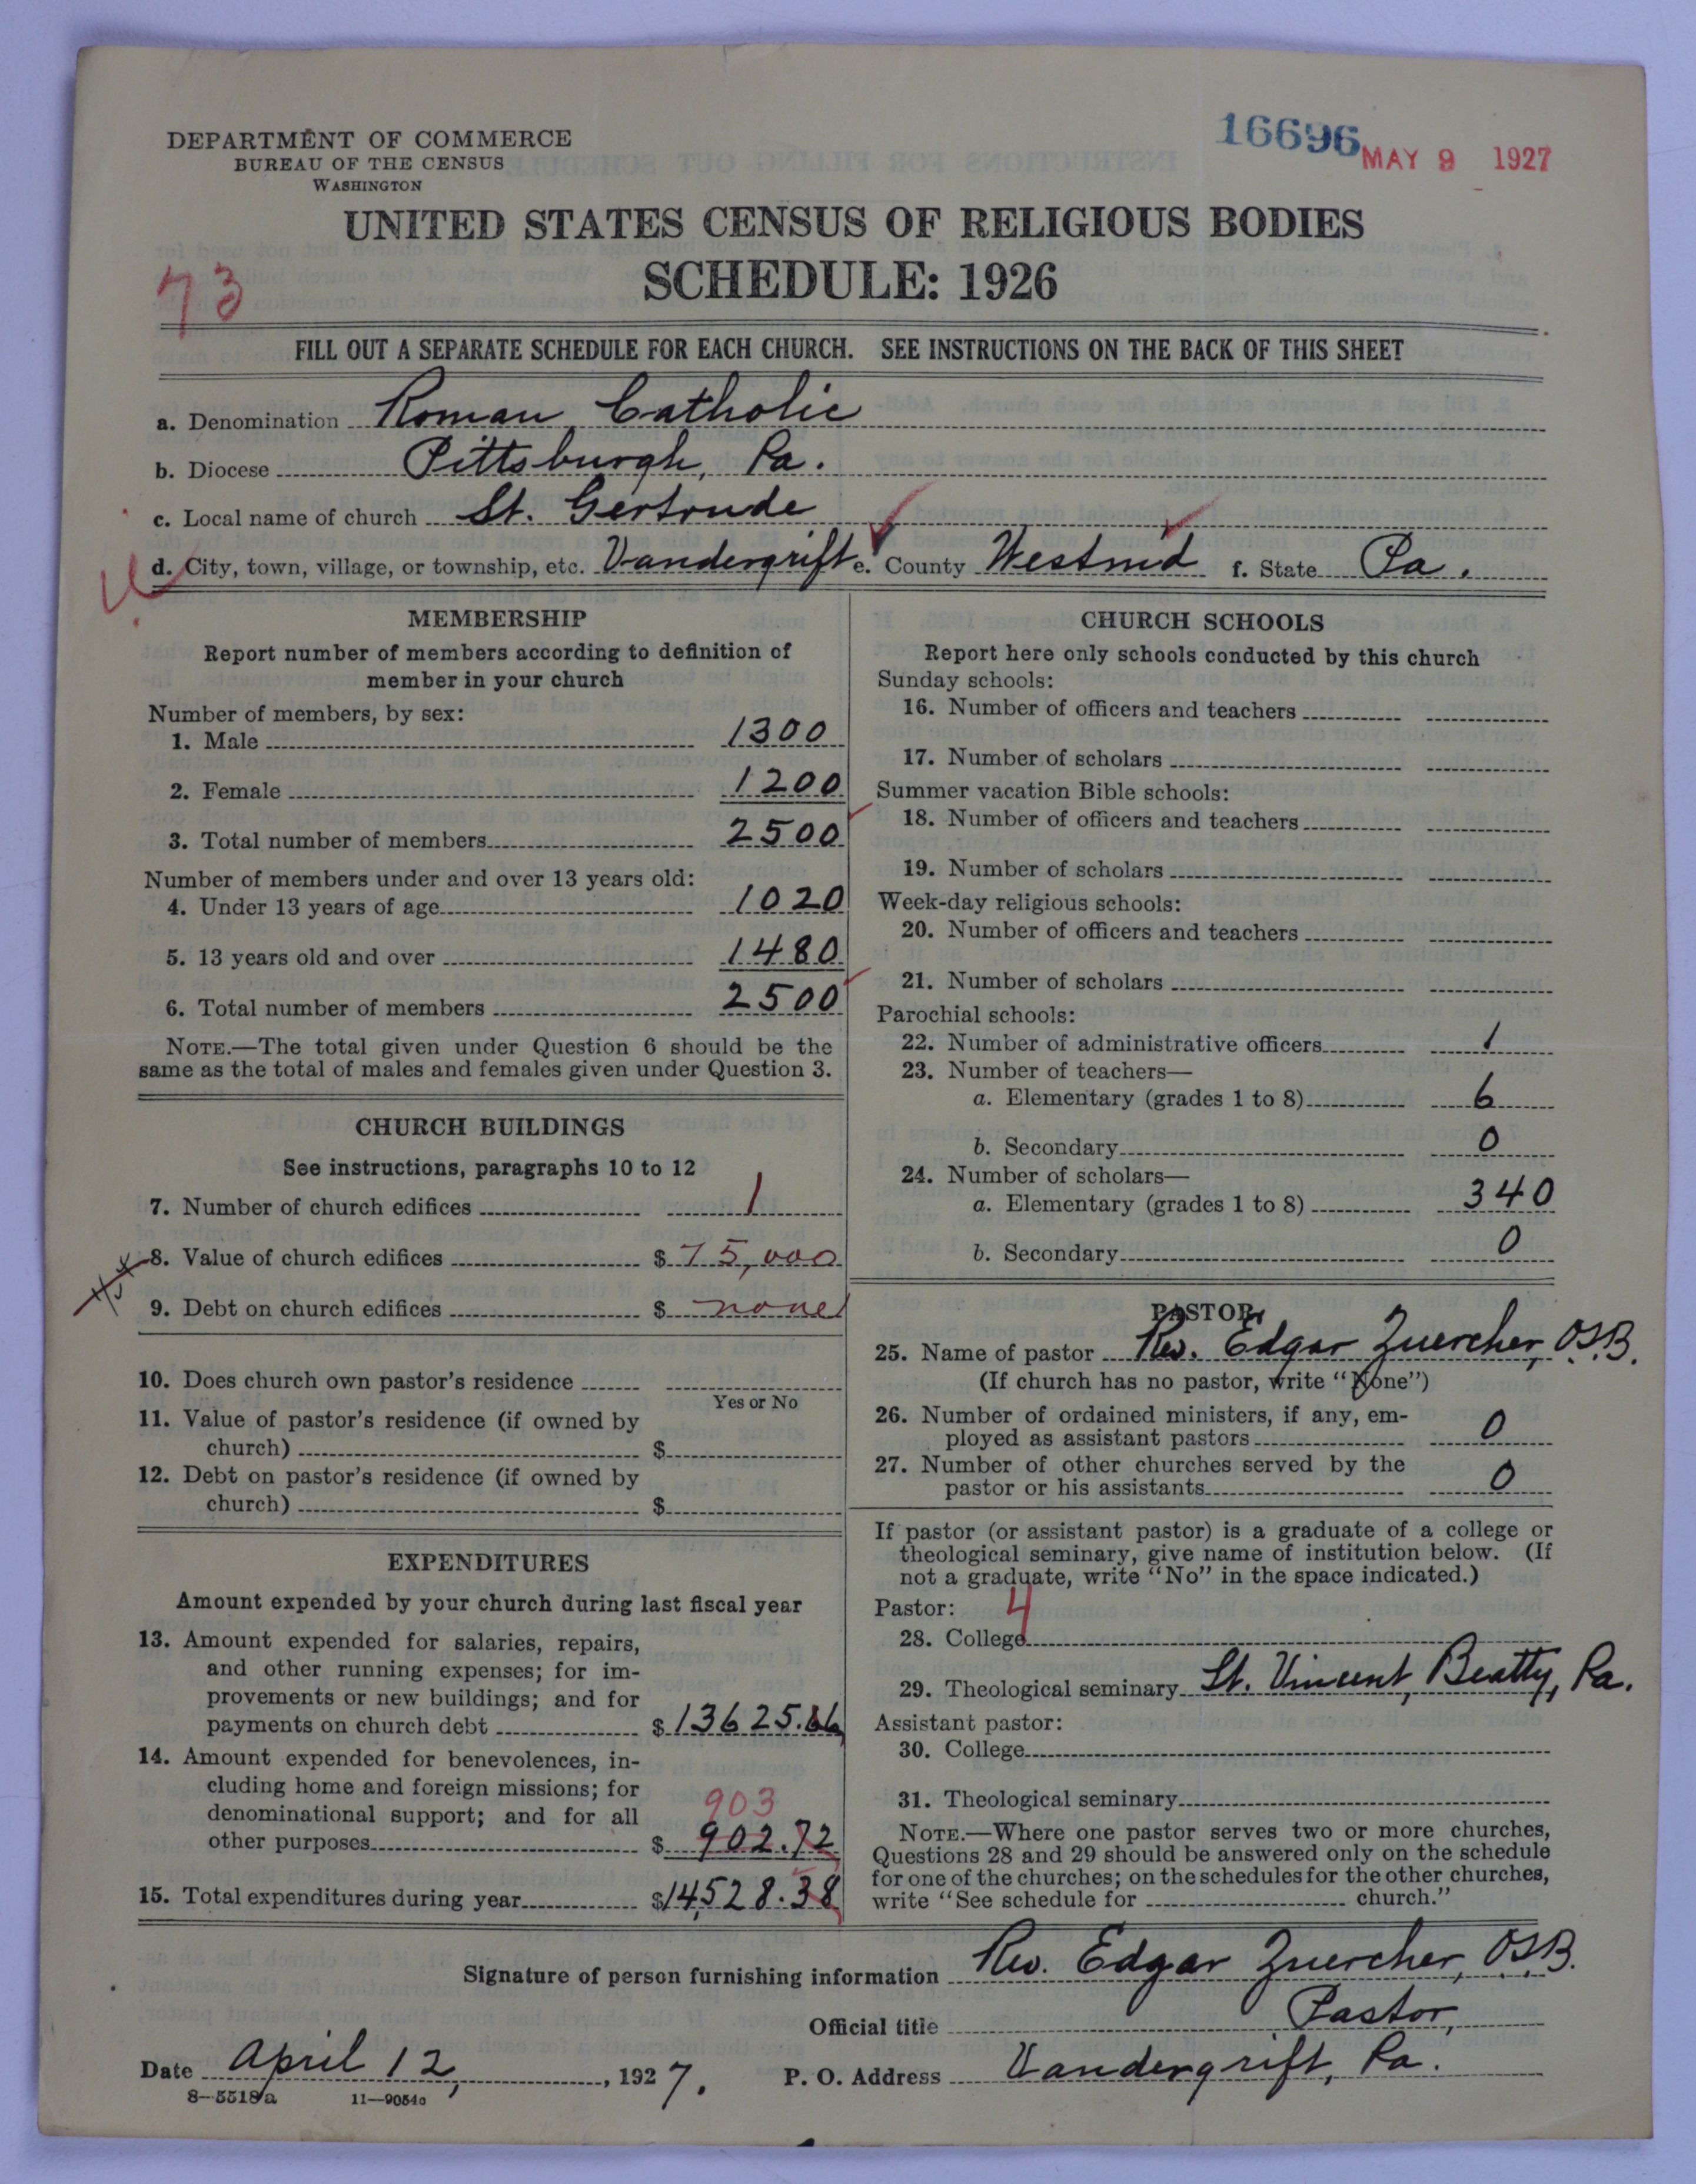 DEPARTMENT OF COMMERCE
BUREAU OF THE CENSUS
WASHINGTON
16696
MAY 9 1927
UNITED STATES CENSUS OF RELIGIOUS BODIES
SCHEDULE: 1926
73
FILL OUT A SEPARATE SCHEDULE FOR EACH CHURCH. SEE INSTRUCTIONS ON THE BACK OF THIS SHEET
a. Denomination Roman Catholic
b. Diocese Pittsburgh, Pa.
c. Local name of church St. Gertrude
d. City, town, village, or township, etc. Vandergrift e. County Westm'd f. State Pa.
MEMBERSHIP
Report number of members according to definition of
member in your church
Number of members, by sex:
1. Male 1300
2. Female 1200
3. Total number of members 2500
Number of members under and over 13 years old:
4. Under 13 years of age 1020
5. 13 years old and over 1480
6. Total number of members 2500
NOTE.—The total given under Question 6 should be the
same as the total of males and females given under Question 3.
CHURCH BUILDINGS
See instructions, paragraphs 10 to 12
7. Number of church edifices 1
8. Value of church edifices $ 75,000
9. Debt on church edifices $ none
10. Does church own pastor's residence
Yes or No
11. Value of pastor's residence (if owned by
church) $
12. Debt on pastor's residence (if owned by
church) $
EXPENDITURES
Amount expended by your church during last fiscal year
13. Amount expended for salaries, repairs,
and other running expenses; for im-
provements or new buildings; and for
payments on church debt $ 13625.66
14. Amount expended for benevolences, in-
cluding home and foreign missions; for
denominational support; and for all
903
other purposes $ 902.72
15. Total expenditures during year $14,528.38
CHURCH SCHOOLS
Report here only schools conducted by this church
Sunday schools:
16. Number of officers and teachers
17. Number of scholars
Summer vacation Bible schools:
18. Number of officers and teachers
19. Number of scholars
Week-day religious schools:
20. Number of officers and teachers
21. Number of scholars
Parochial schools:
22. Number of administrative officers 1
23. Number of teachers—
a. Elementary (grades 1 to 8) 6
b. Secondary 0
24. Number of scholars—
a. Elementary (grades 1 to 8) 340
b. Secondary 0
PASTOR
25. Name of pastor Rev. Edgar Zuercher, O.S.B.
(If church has no pastor, write "None")
26. Number of ordained ministers, if any, em-
ployed as assistant pastors 0
27. Number of other churches served by the
pastor or his assistants 0
If pastor (or assistant pastor) is a graduate of a college or
theological seminary, give name of institution below. (If
not a graduate, write "No" in the space indicated.)
Pastor: 4
28. College
29. Theological seminary St. Vincent, Beatty, Pa.
Assistant pastor:
30. College
31. Theological seminary
NOTE.—Where one pastor serves two or more churches,
Questions 28 and 29 should be answered only on the schedule
for one of the churches; on the schedules for the other churches,
write "See schedule for church."
Signature of person furnishing information Rev. Edgar Zuercher, O.S.B.
Official title Pastor,
Date April 12, 1927. P. O. Address Vandergrift, Pa.
8—5518a 11—9054a